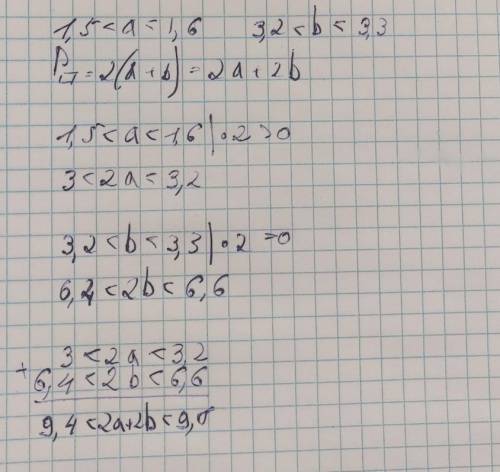 1,5 < a < 1,6 3,2 < b < 3,3
P = 2(a+b) = 2a + 2b
1,5 < a < 1,6 | • 2 > 0
3 < 2a < 3,2
3,2 < b < 3,3 | • 2 > 0
6,4 < 2b < 6,6
3 < 2a < 3,2
+ 6,4 < 2b < 6,6
9,4 < 2a+2b < 9,8